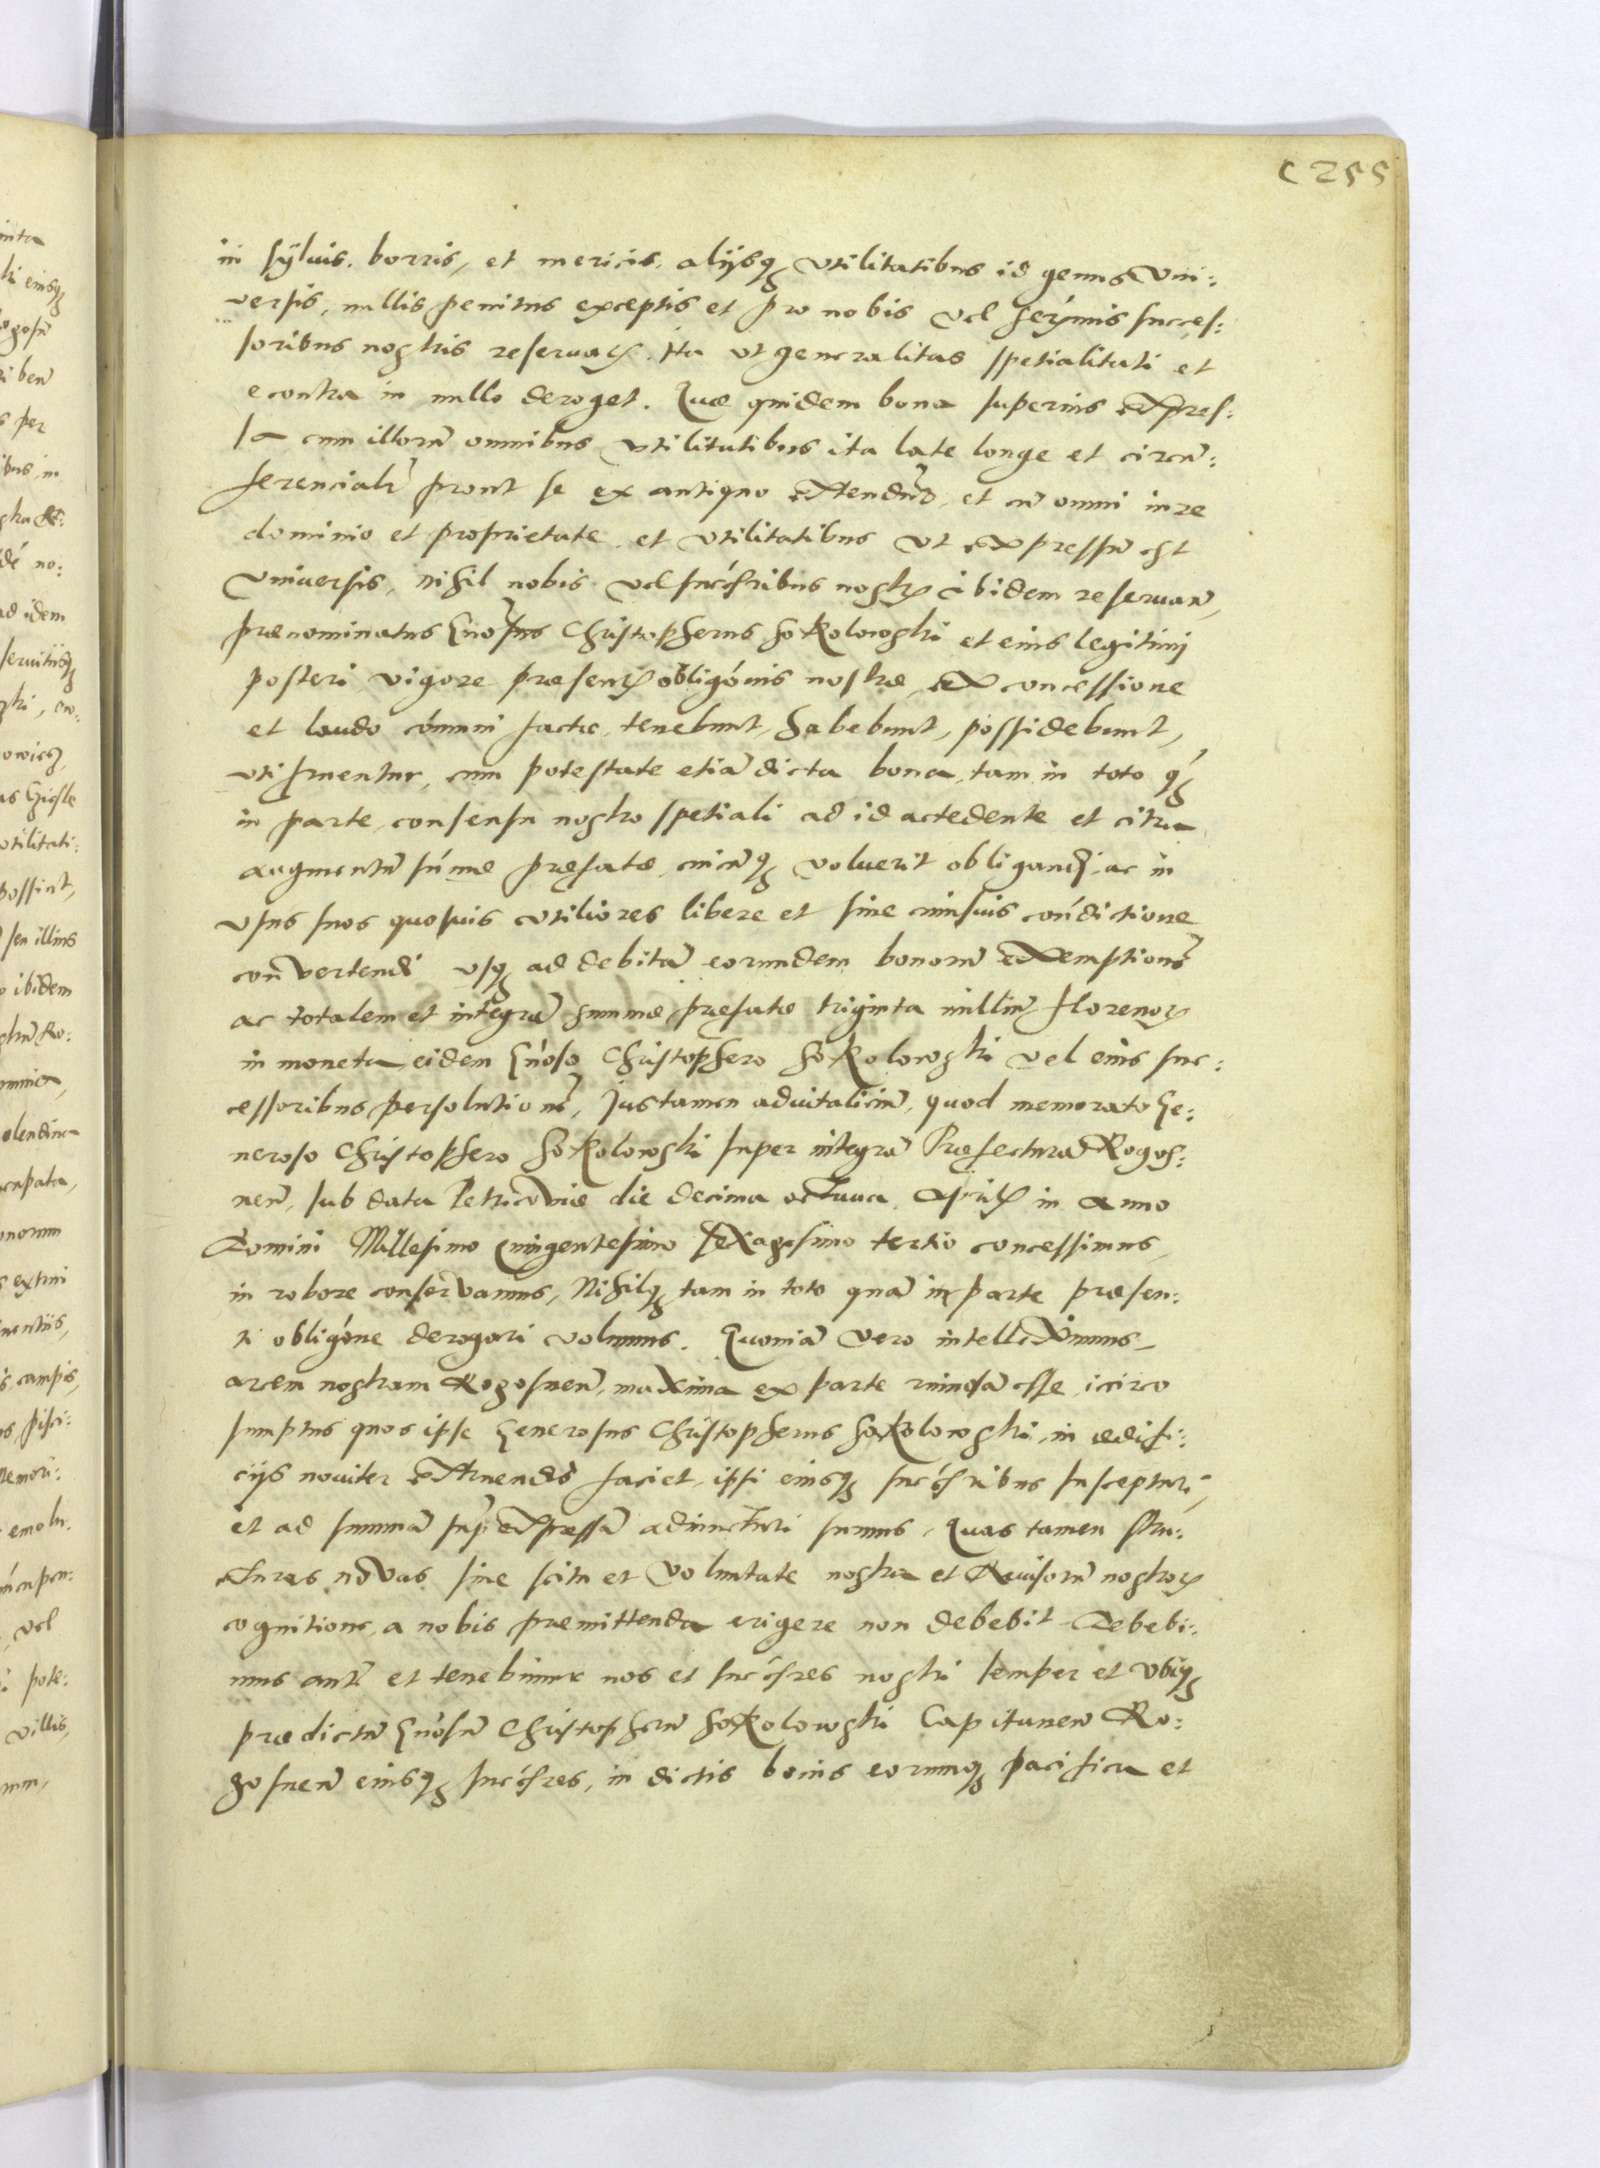 C 255
in sÿluis, borris, et mericis, alijsq₃ vtilitatibus id genus vni:
versis, nullis penitus exceptis et pro nobis vel serymis succes:
soribus nostris reseruatꝭ. Ita vt generalitas spetialitati et
econtra in nullo deroget. Quæ quidem bona superius expres:
sa cum illorū omnibus vtilitatibus ita late longe et circū:
ferencialr̄ prout se ex antiquo extendūt, et cū omni iure
dominio et proprietate et vtilitatibus vt expressū est
vniuersis, nihil nobis vel succs̄ribus nostrꝭ ibidem reseruan̄,
prænominatus Gnōsus Christopherus Sokolowski et eius legitimj
posteri vigore præsentꝭ obligōnis nostræ, ex concessione
et laudo cōmuni factæ, tenebunt, habebunt, possidebunt,
vti fruentur, cum potestate etiā dicta bona tam in toto q́₃
in parte, consensu nostro spetiali ad id accedente et citra
augmentū sūmæ præfatæ, cuicūq₃ voluerit obligandi, ac in
vsus suos quosuis vtiliores libere et sine cuiusuis cōndictione
conuertendi vsq₃ ad debitā eorundem bonorū exemptionē
ac totalem et integrā summæ præfatæ triginta milliū florenoꝝ
in moneta eidem Gnōso Christophero Sokolowski vel eius suc:
cessoribus persolutionē, Jus tamen aduitaliciū, quod memorato Ge:
neroso Christophero Sokolowski super integrā Præfecturā Rogos:
nen̄, sub data Petricouiæ die decima octaua Aprilꝭ in Anno
Domini Millesimo Quingentesimo sexagesimo tertio concessimus,
in robore conseruamus, Nihilq₃ tam in toto quā in parte præsen:
ti obligōne derogari volumus. Quoniā vero intelleximus
arcem nostram Rogosnen̄, maxima ex parte ruinosā esse, icirco
sumptus quos ipse Generosus Christopherus Sokolowski, in ædifi:
cijs nouiter extruendis faciet, ipsi eiusq₃ succs̄ribus suscepturi,
et ad summā sup̄ expressā adiuncturi sumus, Quas tamen stru:
cturas nouas sine scitu et voluntate nostra et Reuisorū nostroꝝ
cognitione, a nobis præmittenda erigere non debebit Debebi:
mus aut̄ et tenebimur nos et succs̄res nostri semper et vbiq₃
prædictū Gnōsū Christopherū Sokolowski Capitaneū Ro:
gosnen̄ eiusq₃ succs̄res, in dictis bonis eorumq₃ pacifica et